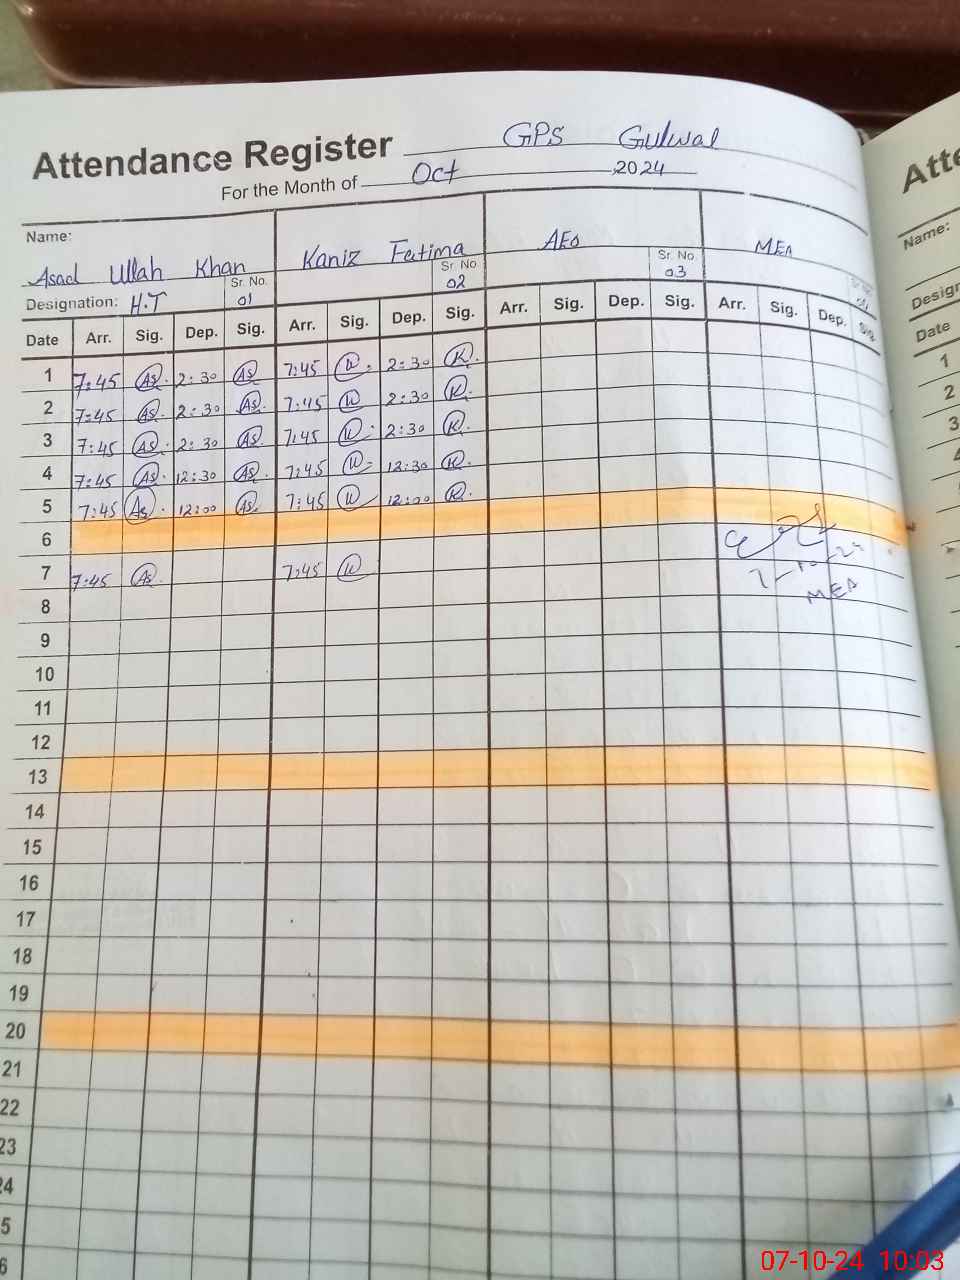 Attendance Register GPS Gulwal
For the Month of Oct ,2024
Name:
Asad Ullah Khan Kaniz Fatima AEO MEA
Sr. No. 01 Sr. No. 02 Sr. No. 03
Designation: H.T
Date Arr. Sig. Dep. Sig. Arr. Sig. Dep. Sig. Arr. Sig. Dep. Sig. Arr. Sig. Dep. Sig.
1 7:45 As. 2:30 As 7:45 2:30 K.
2 7:45 As 2:30 As. 7:45 2:30 K.
3 7:45 As. 2:30 As 7:45 2:30 K.
4 7:45 As. 12:30 As. 7:45 12:30 K.
5 7:45 As. 12:00 As. 7:45 12:00 K.
6
7 7:45 As. 7:45
7-10-24
MEA
8
9
10
11
12
13
14
15
16
17
18
19
20
21
22
23
24
5
6
Atte
Name:
Design
Date
1
2
3
07-10-24 10:03